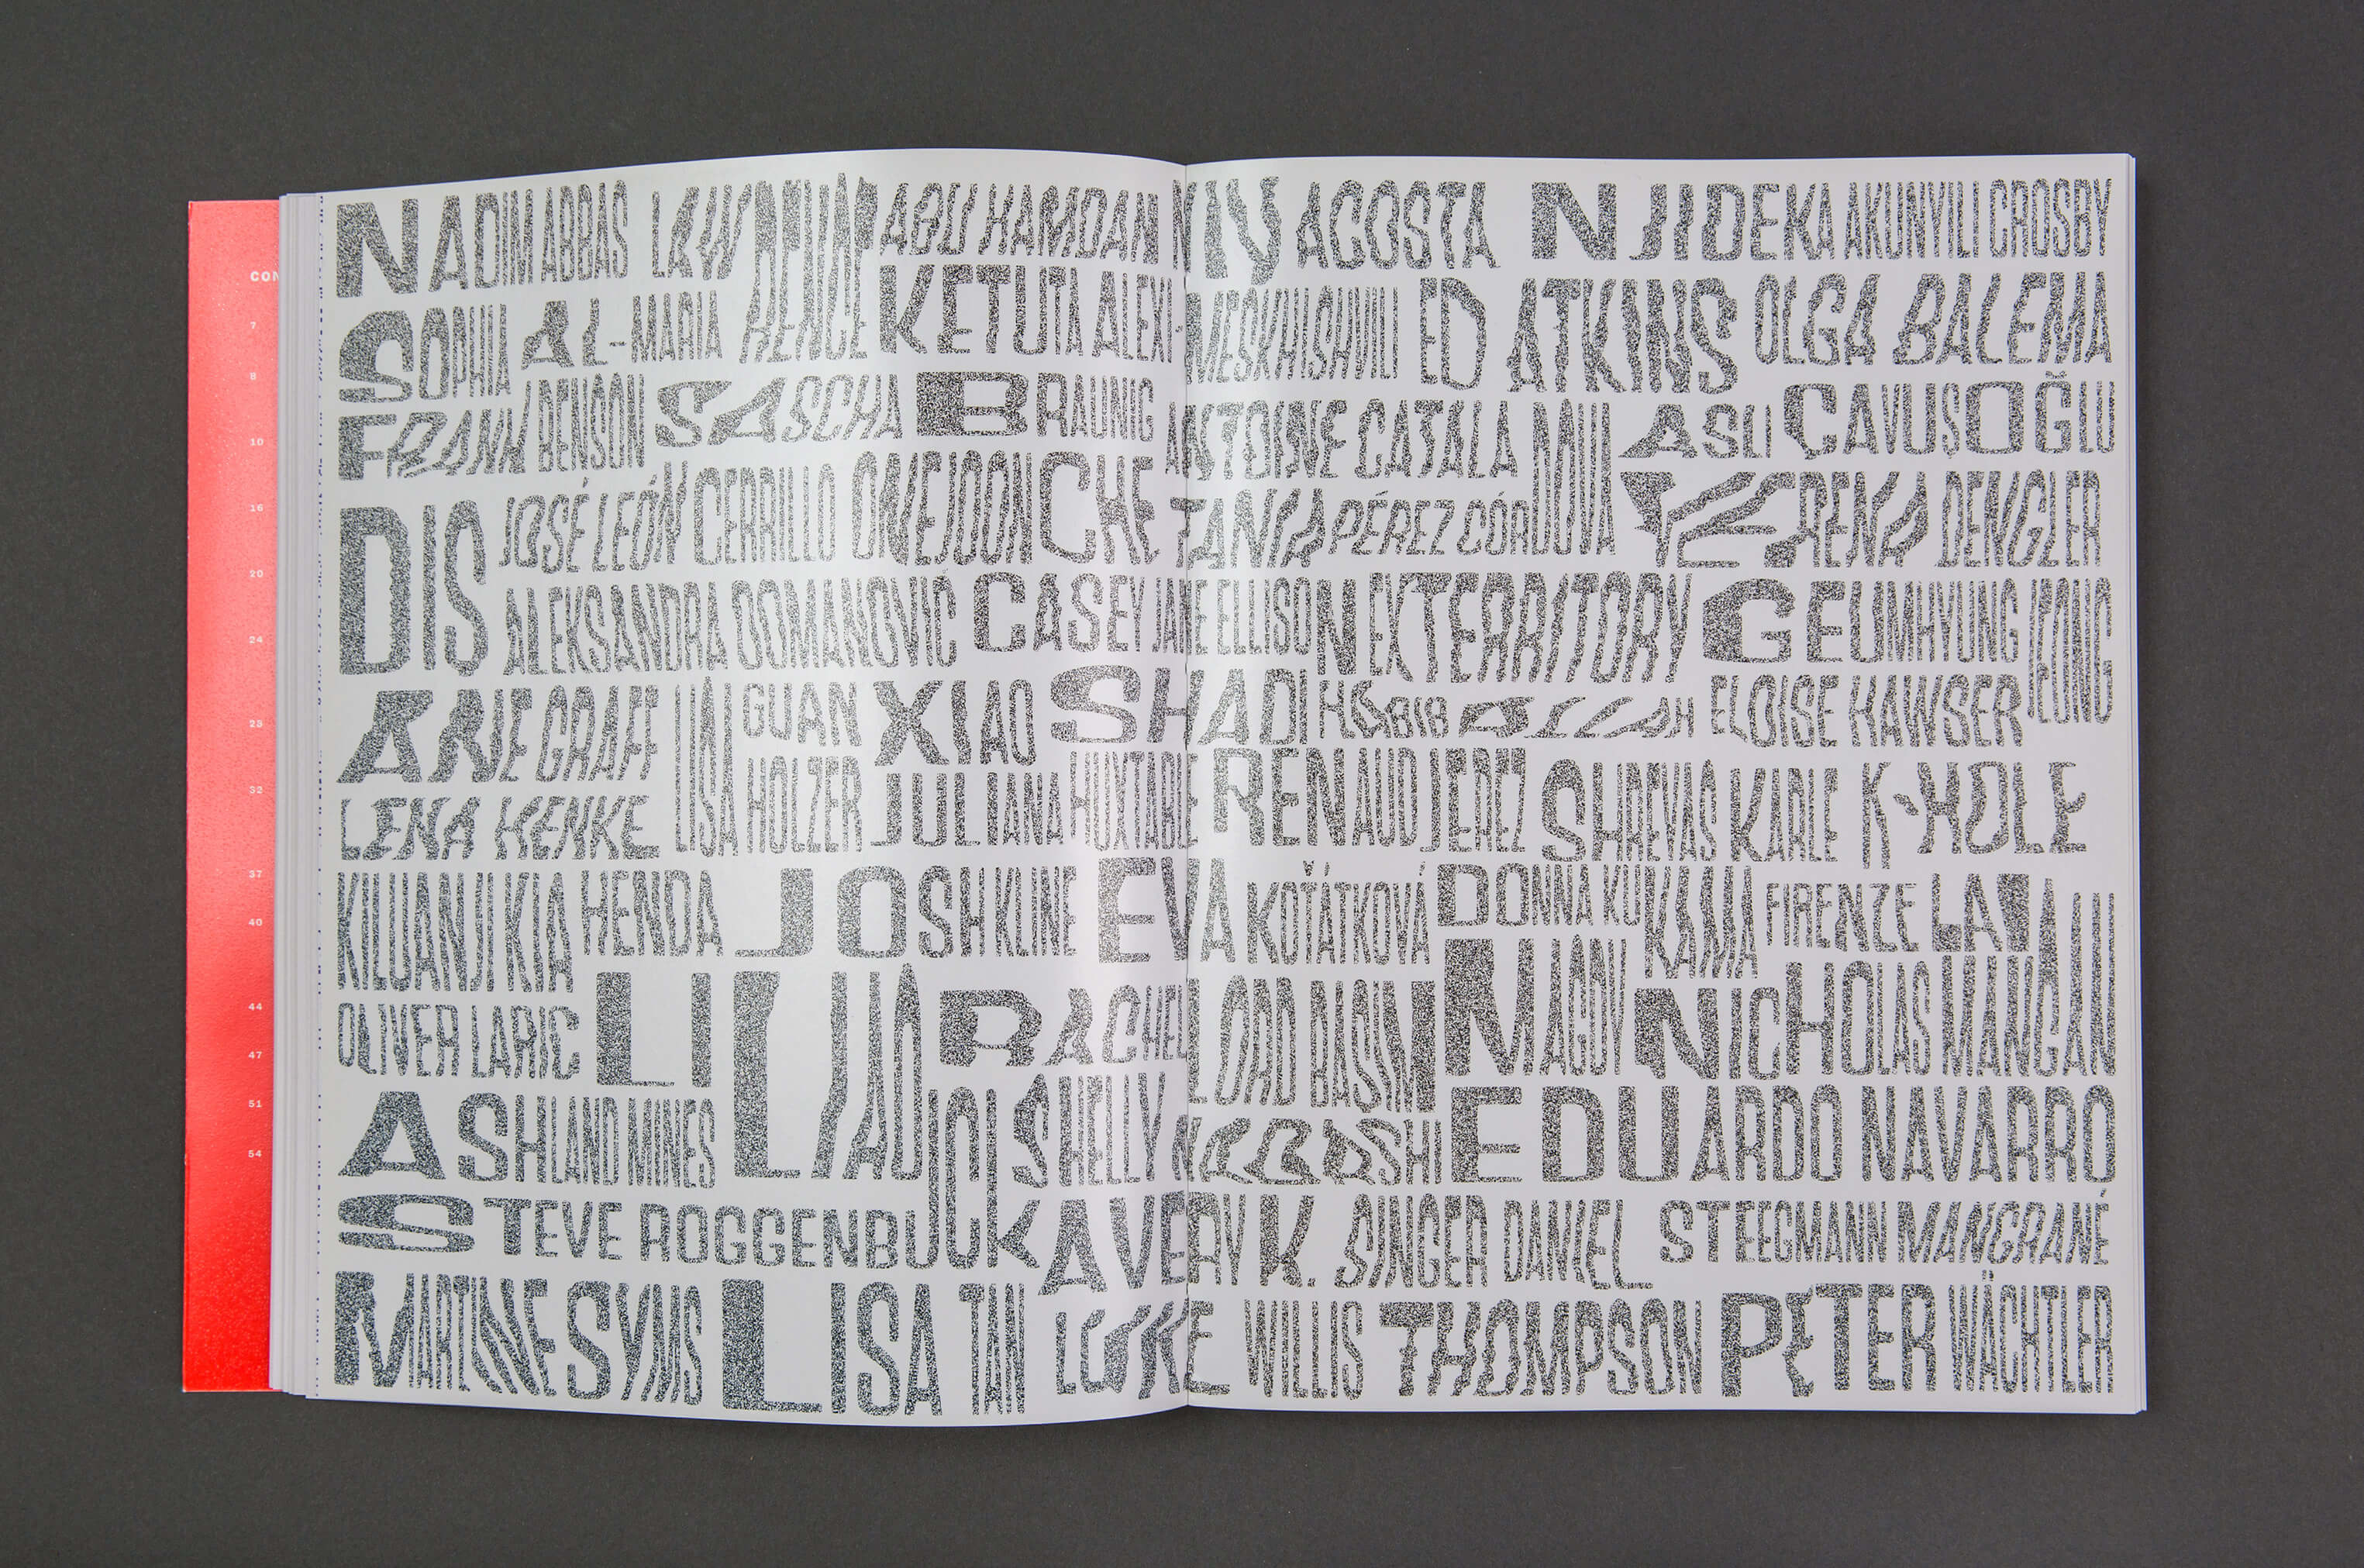 CON
7
8
10
16
20
24
23
32
37
40
44
47
51
54
NADIM ABBAS LAWRENCE ABU HAMDAN NIV ACOSTA NJIDEKA AKUNYILI CROSBY
SOPHIA AL-MARIA KETUTA ALEXI-MESKHISHVILI ED ATKINS OLGA BALEMA
FRANK BENSON SASCHA BRAUNIG ANTOINE CATALA ASLI ÇAVUŞOĞLU
JOSÉ LEÓN CERRILLO ONEJOON CHE TANIA PÉREZ CÓRDOVA VERENA DENGLER
DIS ALEKSANDRA DOMANOVIĆ CASEY JANE ELLISON EXTERRITORY GEUMHYUNG JEONG
ANE GRAFF GUAN XIAO SHADI HABIB ALLAH ELOISE HAWSER
LENA HENKE LISA HOLZER JULIANA HUXTABLE RENAUD JEREZ SHREYAS KARLE K-HOLE
KILUANJI KIA HENDA JOSH KLINE EVA KOŤÁTKOVÁ DONNA KUKAMA FIRENZE LAI
OLIVER LARIC LI LIAO RACHEL LORD BASIM MAGDY NICHOLAS MANGAN
ASHLAND MINES SHELLY NADASHI EDUARDO NAVARRO
STEVE ROGGENBUCK AVERY K. SINGER DANIEL STEEGMANN MANGRANÉ
MARTINE SYMS LISA TAN LUKE WILLIS THOMPSON PETER WÄCHTLER